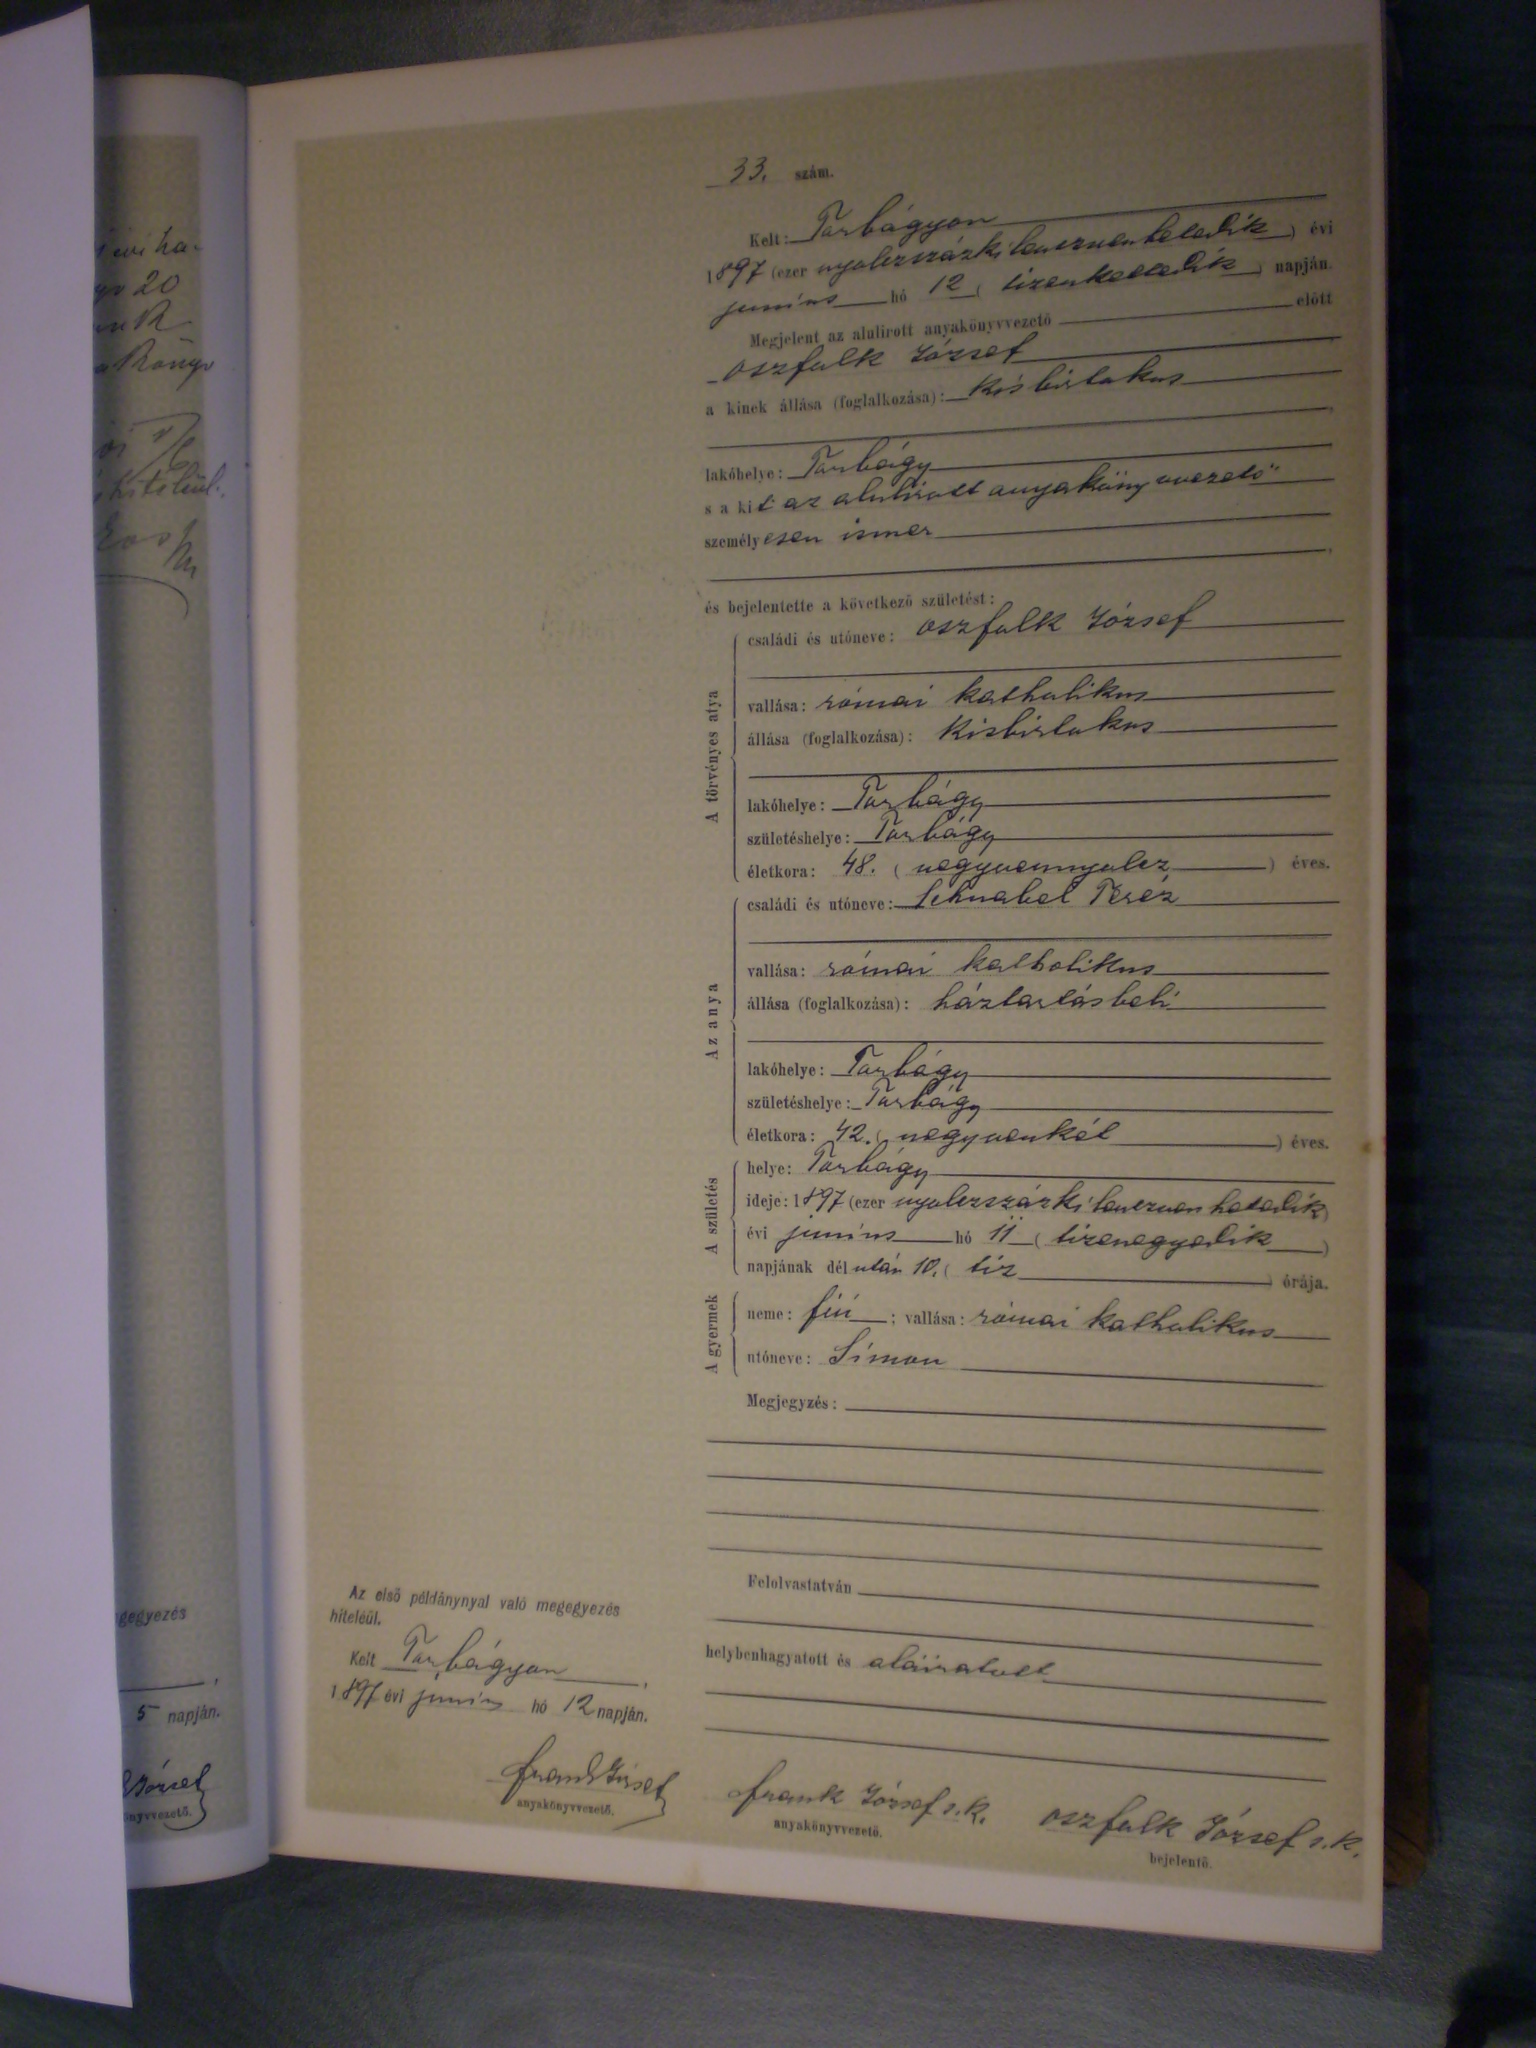 33. szám.
Kelt: Torbágyon
1897 (ezer nyolczszázkilenczvenhetedik) évi
junius hó 12 (tizenkettedik) napján.
Megjelent az alulirott anyakönyvvezető előtt
Oszfolk József
a kinek állása (foglalkozása): kisbirtokos
lakóhelye: Torbágy
s a kit az alulirott anyakönyvvezető
személyesen ismer
és bejelentette a következő születést:
A törvényes atya
családi és utóneve: Oszfolk József
vallása: római katholikus
állása (foglalkozása): kisbirtokos
lakóhelye: Torbágy
születéshelye: Torbágy
életkora: 48. (negyvennyolcz) éves.
Az anya
családi és utóneve: Schnabel Teréz
vallása: római katholikus
állása (foglalkozása): háztartásbeli
lakóhelye: Torbágy
születéshelye: Torbágy
életkora: 42. (negyvenkét) éves.
A születés
helye: Torbágy
ideje: 1897 (ezer nyolczszázkilenczvenhetedik)
évi junius hó 11 (tizenegyedik)
napjának délután 10. (tiz) órája.
A gyermek
neme: fiú; vallása: római katholikus
utóneve: Simon
Megjegyzés:
Felolvastatván
helybenhagyatott és aláiratott
Frank József s.k.
anyakönyvvezető.
Oszfolk József s.k.
bejelentő.
Az első példánynyal való megegyezés
hiteléül.
Kelt Torbágyon,
1897 évi junius hó 12 napján.
Frank József
anyakönyvvezető.
20
gegyezés
5 napján.
József
önyvvezető.